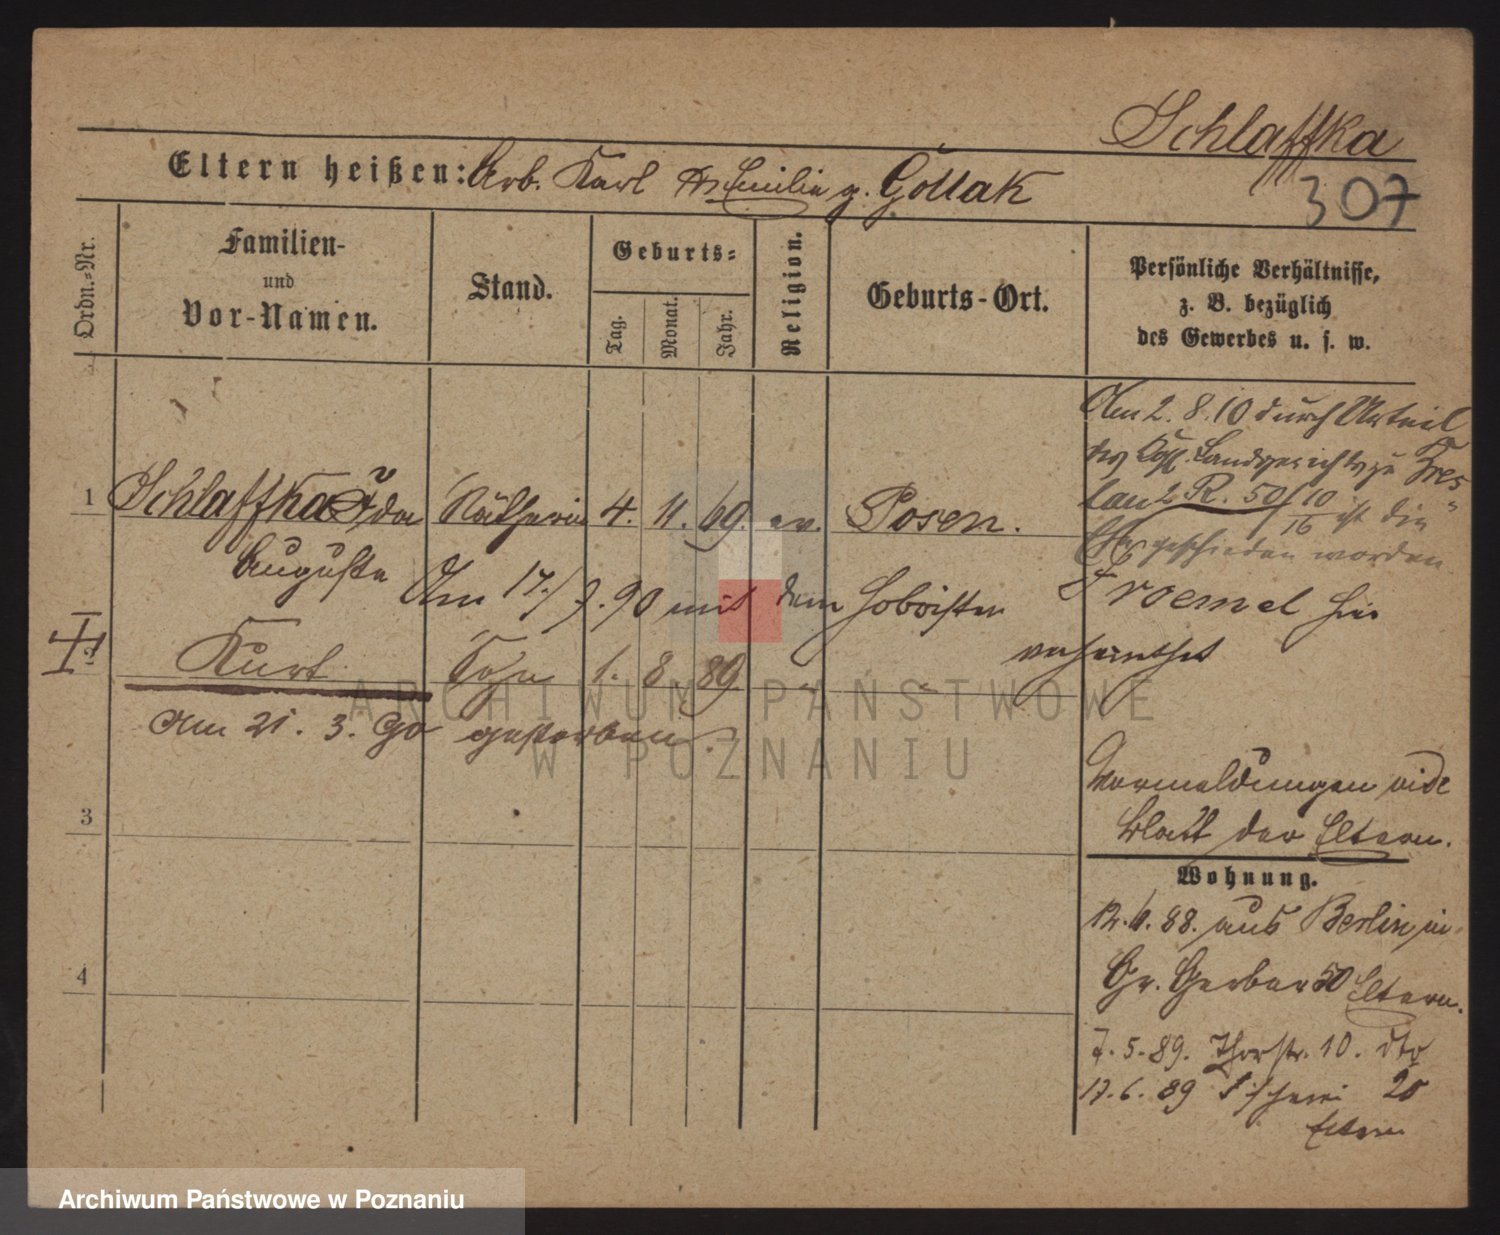 Schlaffka
307
Eltern heißen: Arb. Karl u. Emilie g. Gollak
Ordn.-Nr.
Familien-
und
Vor-Namen.
Stand.
Geburts-
Tag.
Monat.
Jahr.
Religion.
Geburts-Ort.
Persönliche Verhältnisse,
z. B. bezüglich
des Gewerbes u. s. w.
Am 2. 8. 10 durch Urteil
des Kgl. Landgerichts zu Bres
lau 2 R. 50/10
16 ist die
Ehe geschieden worden
1 Schlaffka Ida Nätherin 4. 11. 69. ev. Posen.
Auguste
Am 17./7. 90 mit dem Hoboisten Froemel hier
verheirathet
2 Kurt Sohn 1. 8. 89
am 21. 3. 90 gestorben.
3
4
Vormeldungen vide
Blatt der Eltern.
Wohnung.
12. 6. 88. aus Berlin in
Gr. Gerber 50 Eltern.
7. 5. 89. Thorstr. 10. dto
17. 6. 89 Fischerei 20
Eltern
ARCHIWUM PAŃSTWOWE
W POZNANIU
Archiwum Państwowe w Poznaniu